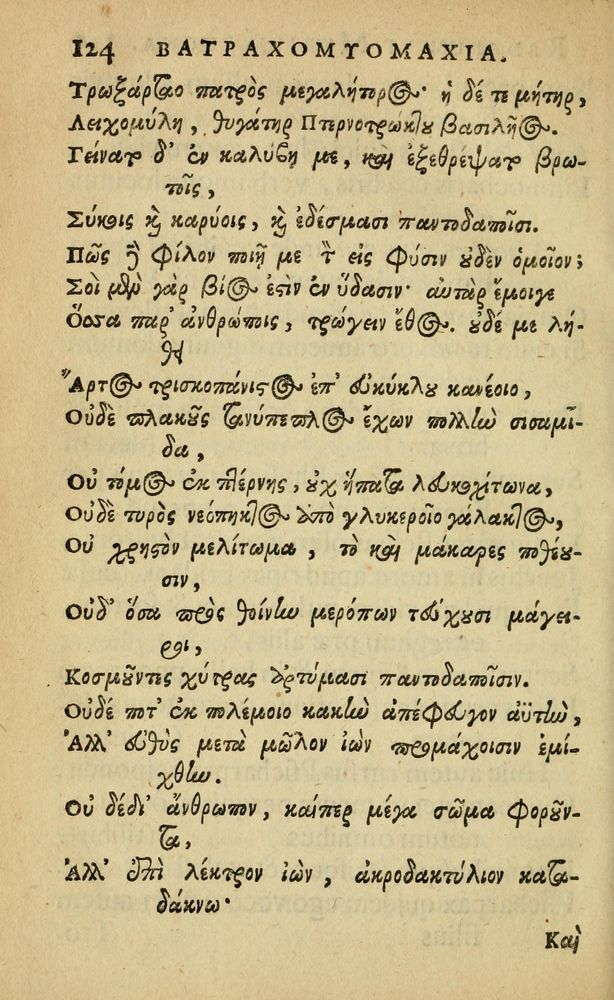 124 ΒΑΤΡΑΧΟΜΥΟΜΑΧΙΑ.
Τρωξάρταο πατρὸς μεγαλήτορος· ἡ δέ τε μήτηρ,
Λειχομύλη, θυγάτηρ Πτερνοτρώκτου βασιλῆος.
Γείνατο δ' ἐν καλύβῃ με, καὶ ἐξεθρέψατο βρω-
τοῖς,
Σύκοις καὶ καρύοις, καὶ ἐδέσμασι παντοδαποῖσι.
Πῶς δὲ φίλον ποιῇ με τὸν εἰς φύσιν οὐδὲν ὁμοῖον;
Σοὶ μὲν γὰρ βίος ἐστὶν ἐν ὕδασιν· αὐτὰρ ἔμοιγε
Ὅσσα παρ' ἀνθρώποις, τρώγειν ἔθος. οὐδέ με λή-
θει
Ἄρτος τρισκοπάνιστος ἐπ' εὐκύκλου κανέοιο,
Οὐδὲ πλακοῦς τανύπεπλος ἔχων πολλὴν σισαμί-
δα,
Οὐ τόμος ἐκ πτέρνης, οὐχ ἥπατα λευκοχίτωνα,
Οὐδὲ τυρὸς νεόπηκτος ἀπὸ γλυκεροῖο γάλακτος,
Οὐ χρηστὸν μελίτωμα, τὸ καὶ μάκαρες ποθέου-
σιν,
Οὐδ' ὅσα πρὸς θοίνην μερόπων τεύχουσι μάγει-
ροι,
Κοσμοῦντες χύτρας ἀρτύμασι παντοδαποῖσιν.
Οὐδέ ποτ' ἐκ πολέμοιο κακὴν ἀπέφευγον ἀϋτὴν,
Ἀλλ' εὐθὺς μετὰ μῶλον ἰὼν προμάχοισιν ἐμί-
χθην.
Οὐ δέδι' ἄνθρωπον, καίπερ μέγα σῶμα φοροῦν-
τα,
Ἀλλ' ἐπὶ λέκτρον ἰὼν, ἀκροδακτύλιον κατα-
δάκνω·
Καὶ